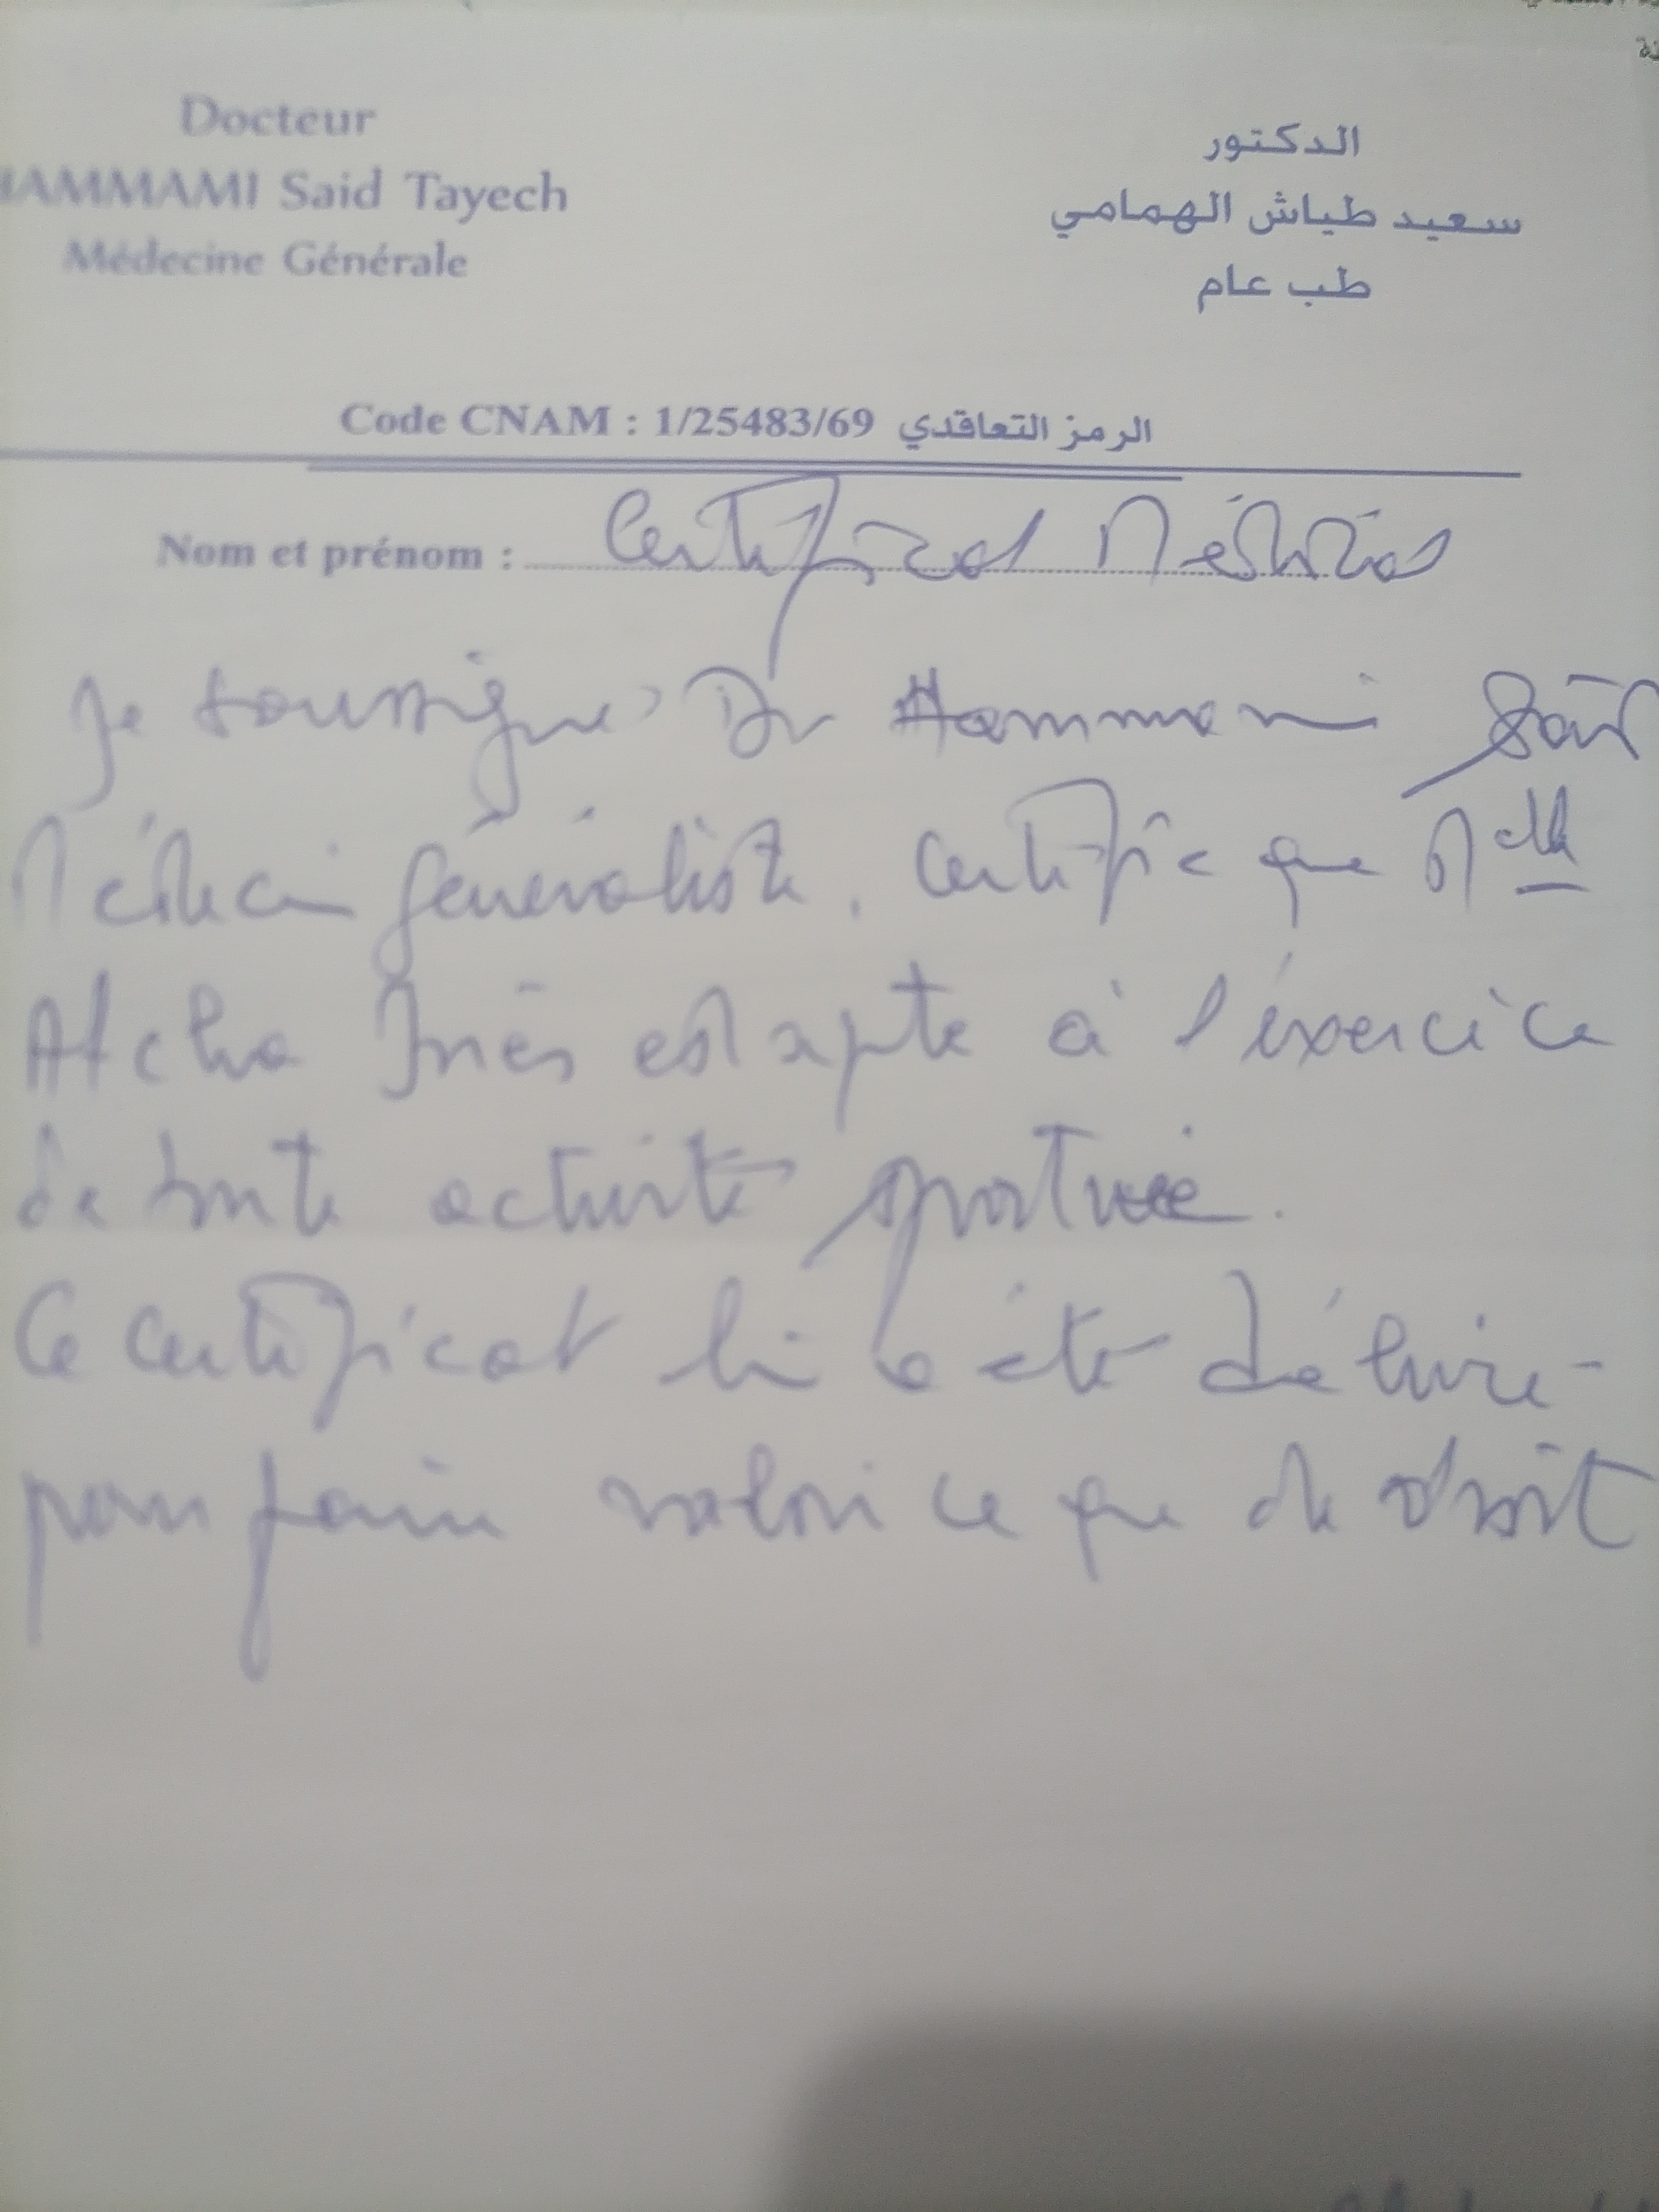 Docteur
HAMMAMI Said Tayech
Médecine Générale
الدكتور
سعيد طياش الهمامي
طب عام
Code CNAM : 1/25483/69 الرمز التعاقدي
Nom et prénom : Certificat Médical
Je soussigné Dr Hammami Said
Médecin généraliste, certifie que Mlle
Atcha Inès est apte à l'éxercice
de toute activité sportive.
Ce certificat lui a été délivré
pour faire valoir ce que de droit